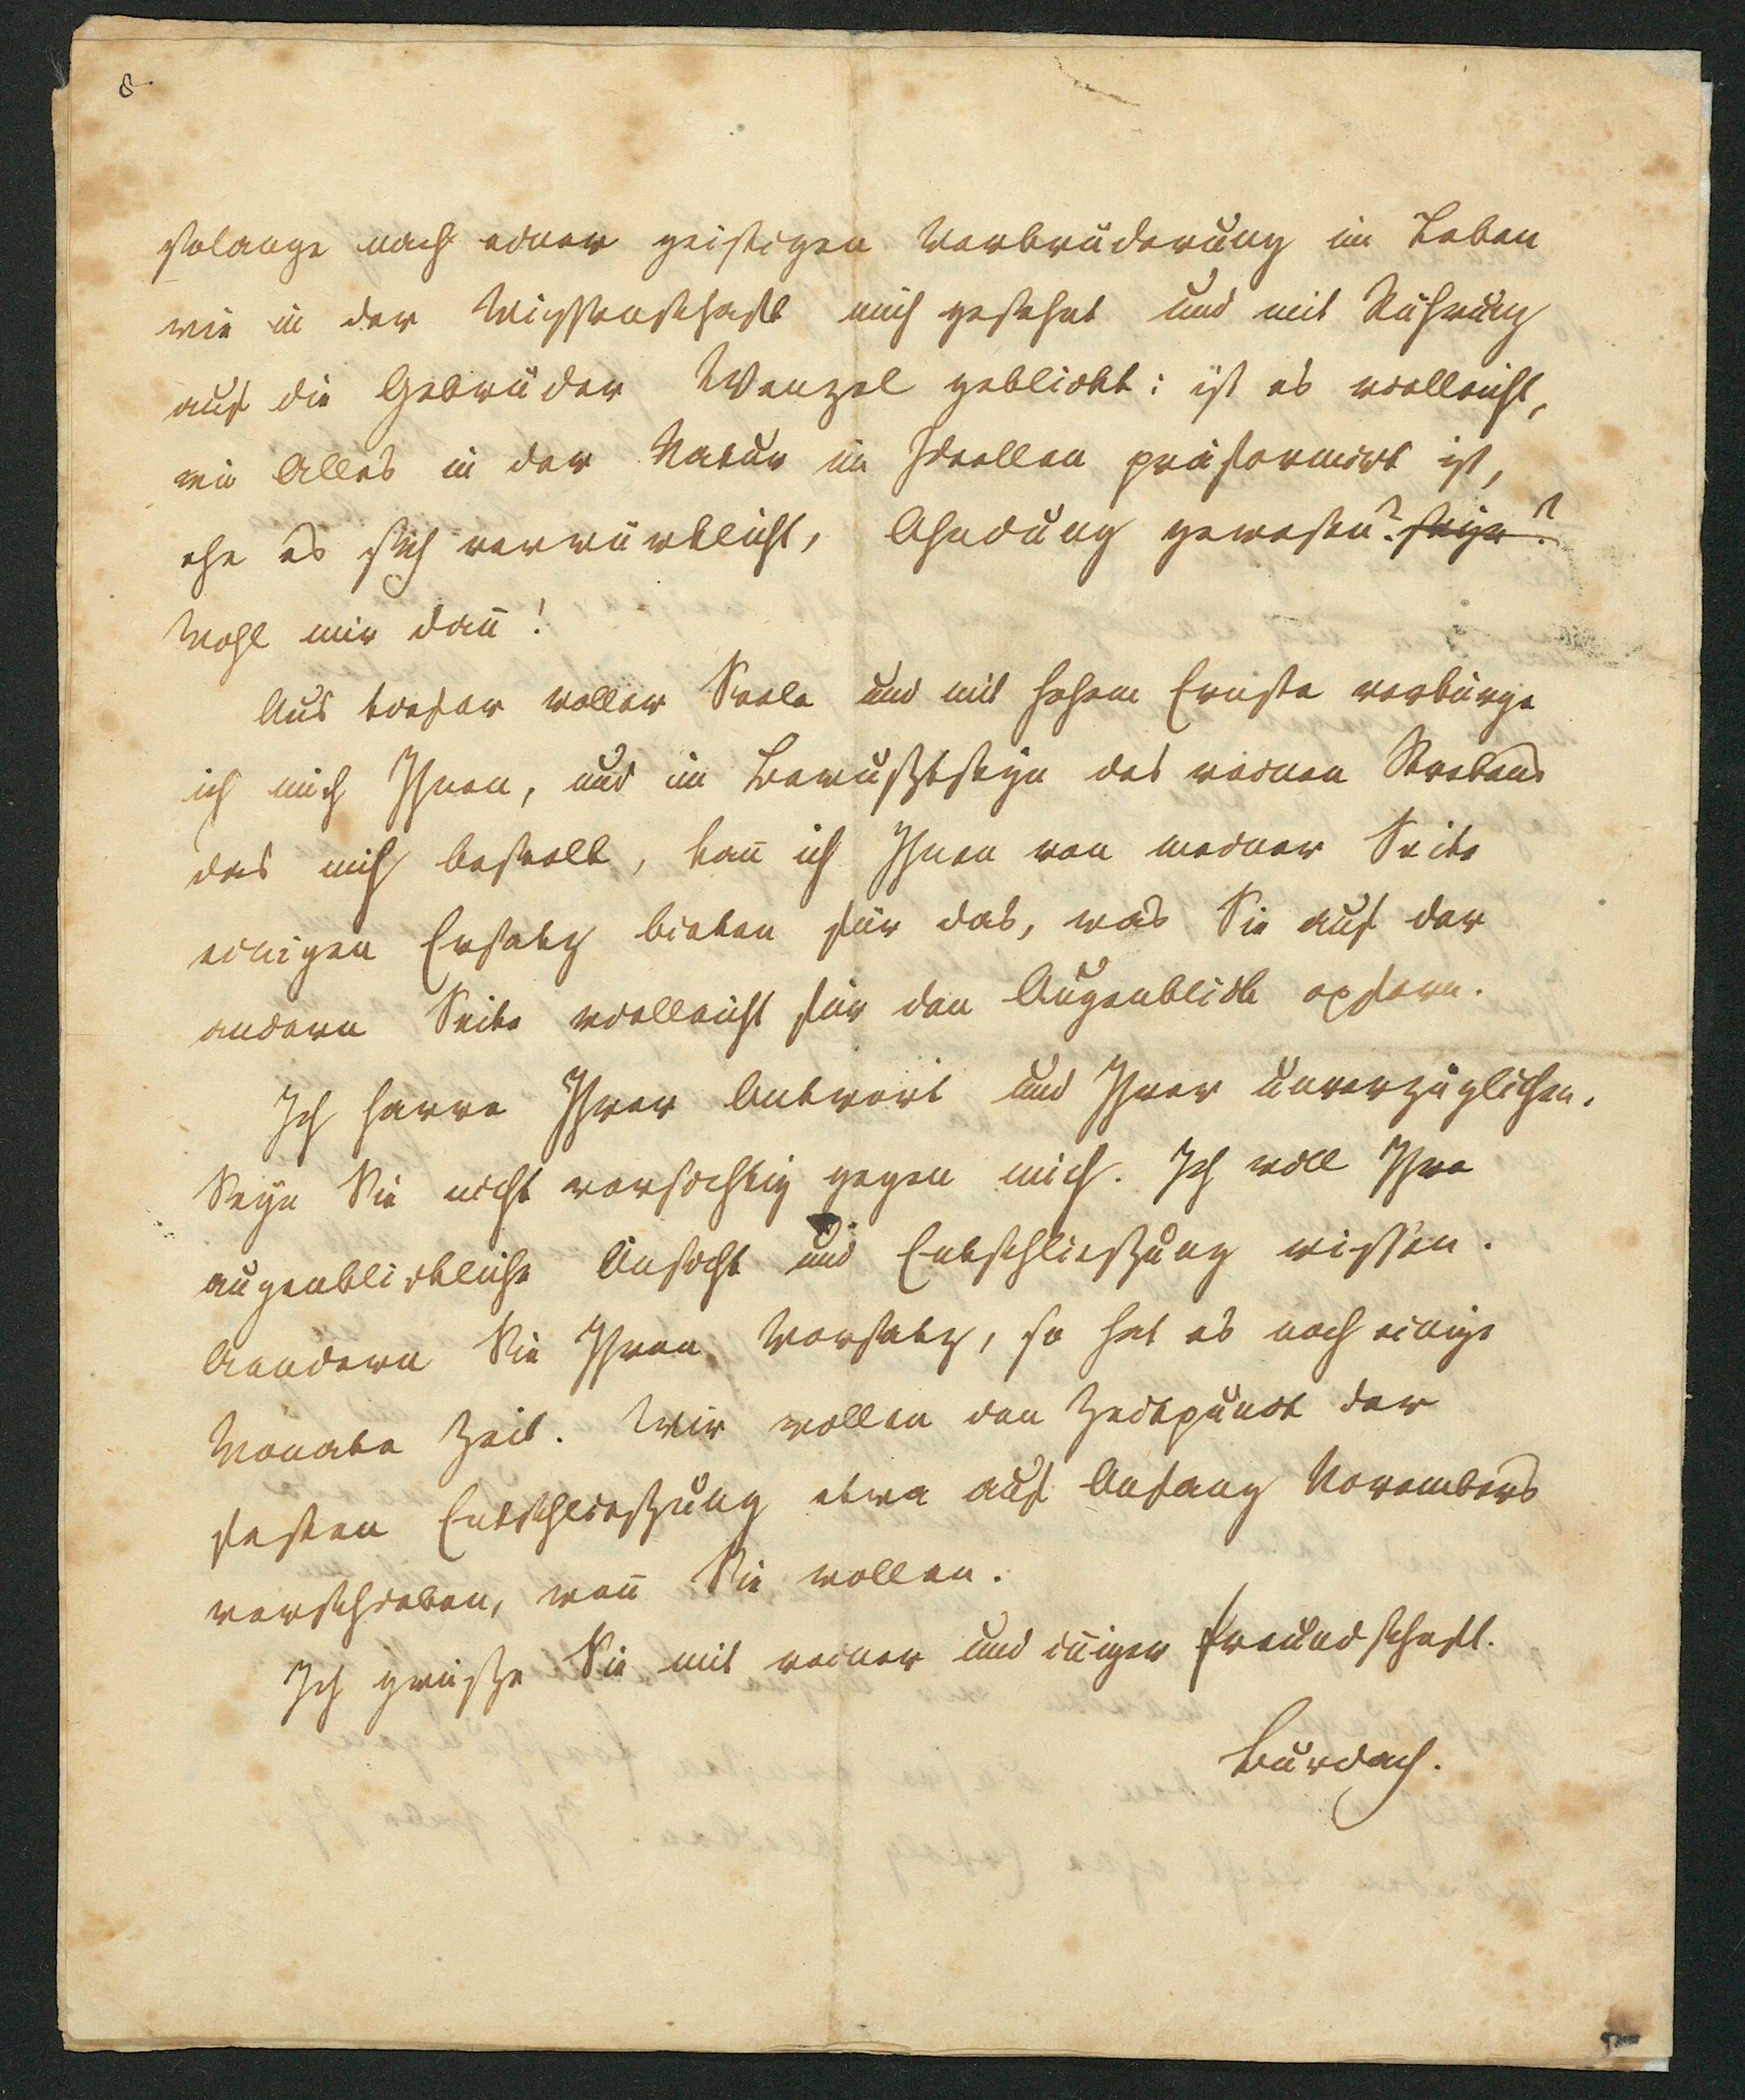 8
solange nach einer geistigen Verbrüderung im Leben
wie in der Wissenschaft mich gesehnt und mit Rührung
auf die Gebrüder Wenzel geblickt: ist es vielleicht,
wie Alles in der Natur im Ideellen präformirt ist,
ehe es sich verwürklicht, Ahndung gewesen? seyn?
Wohl mir dan̄!
Aus tiefer voller Seele und mit hohem Ernste verbürge
ich mich Ihnen, und im Bewußtseyn des reinen Strebens
das mich beseelt, kan̄ ich Ihnen von meiner Seite
einigen Ersatz bieten für das, was Sie auf der
andern Seite vielleicht für den Augenblick opfern.
Ich harre Ihrer Antwort und Ihrer unverzüglichen.
Seyn Sie nicht vorsichtig gegen mich. Ich will Ihre
augenblickliche Ansicht und Entschließung wissen.
Aendern Sie Ihren Vorsatz, so hat es noch einige
Monate Zeit. Wir wollen den Zeitpunct der
festen Entschließung etwa auf Anfang Novembers
verschieben, wen̄ Sie wollen.
Ich grüße Sie mit reiner und in̄iger Freundschaft.
Burdach.